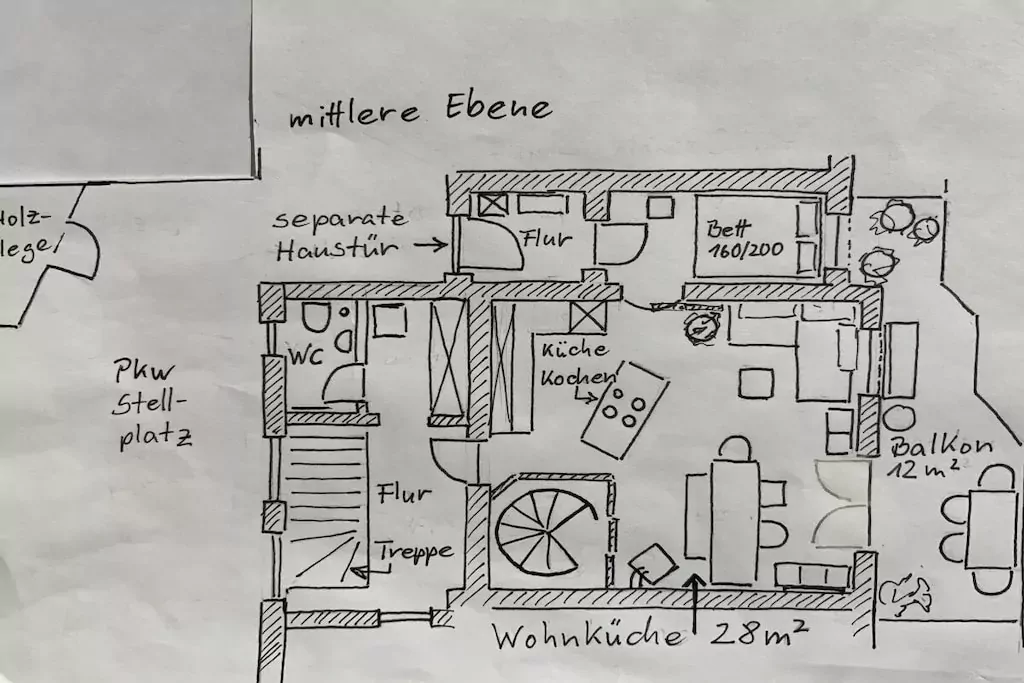 mittlere Ebene
Holz-
lege
separate
Haustür
Flur
Bett
160/200
WC
Küche
Kochen
Pkw
Stell-
platz
Balkon
12 m²
Flur
Treppe
Wohnküche 28 m²